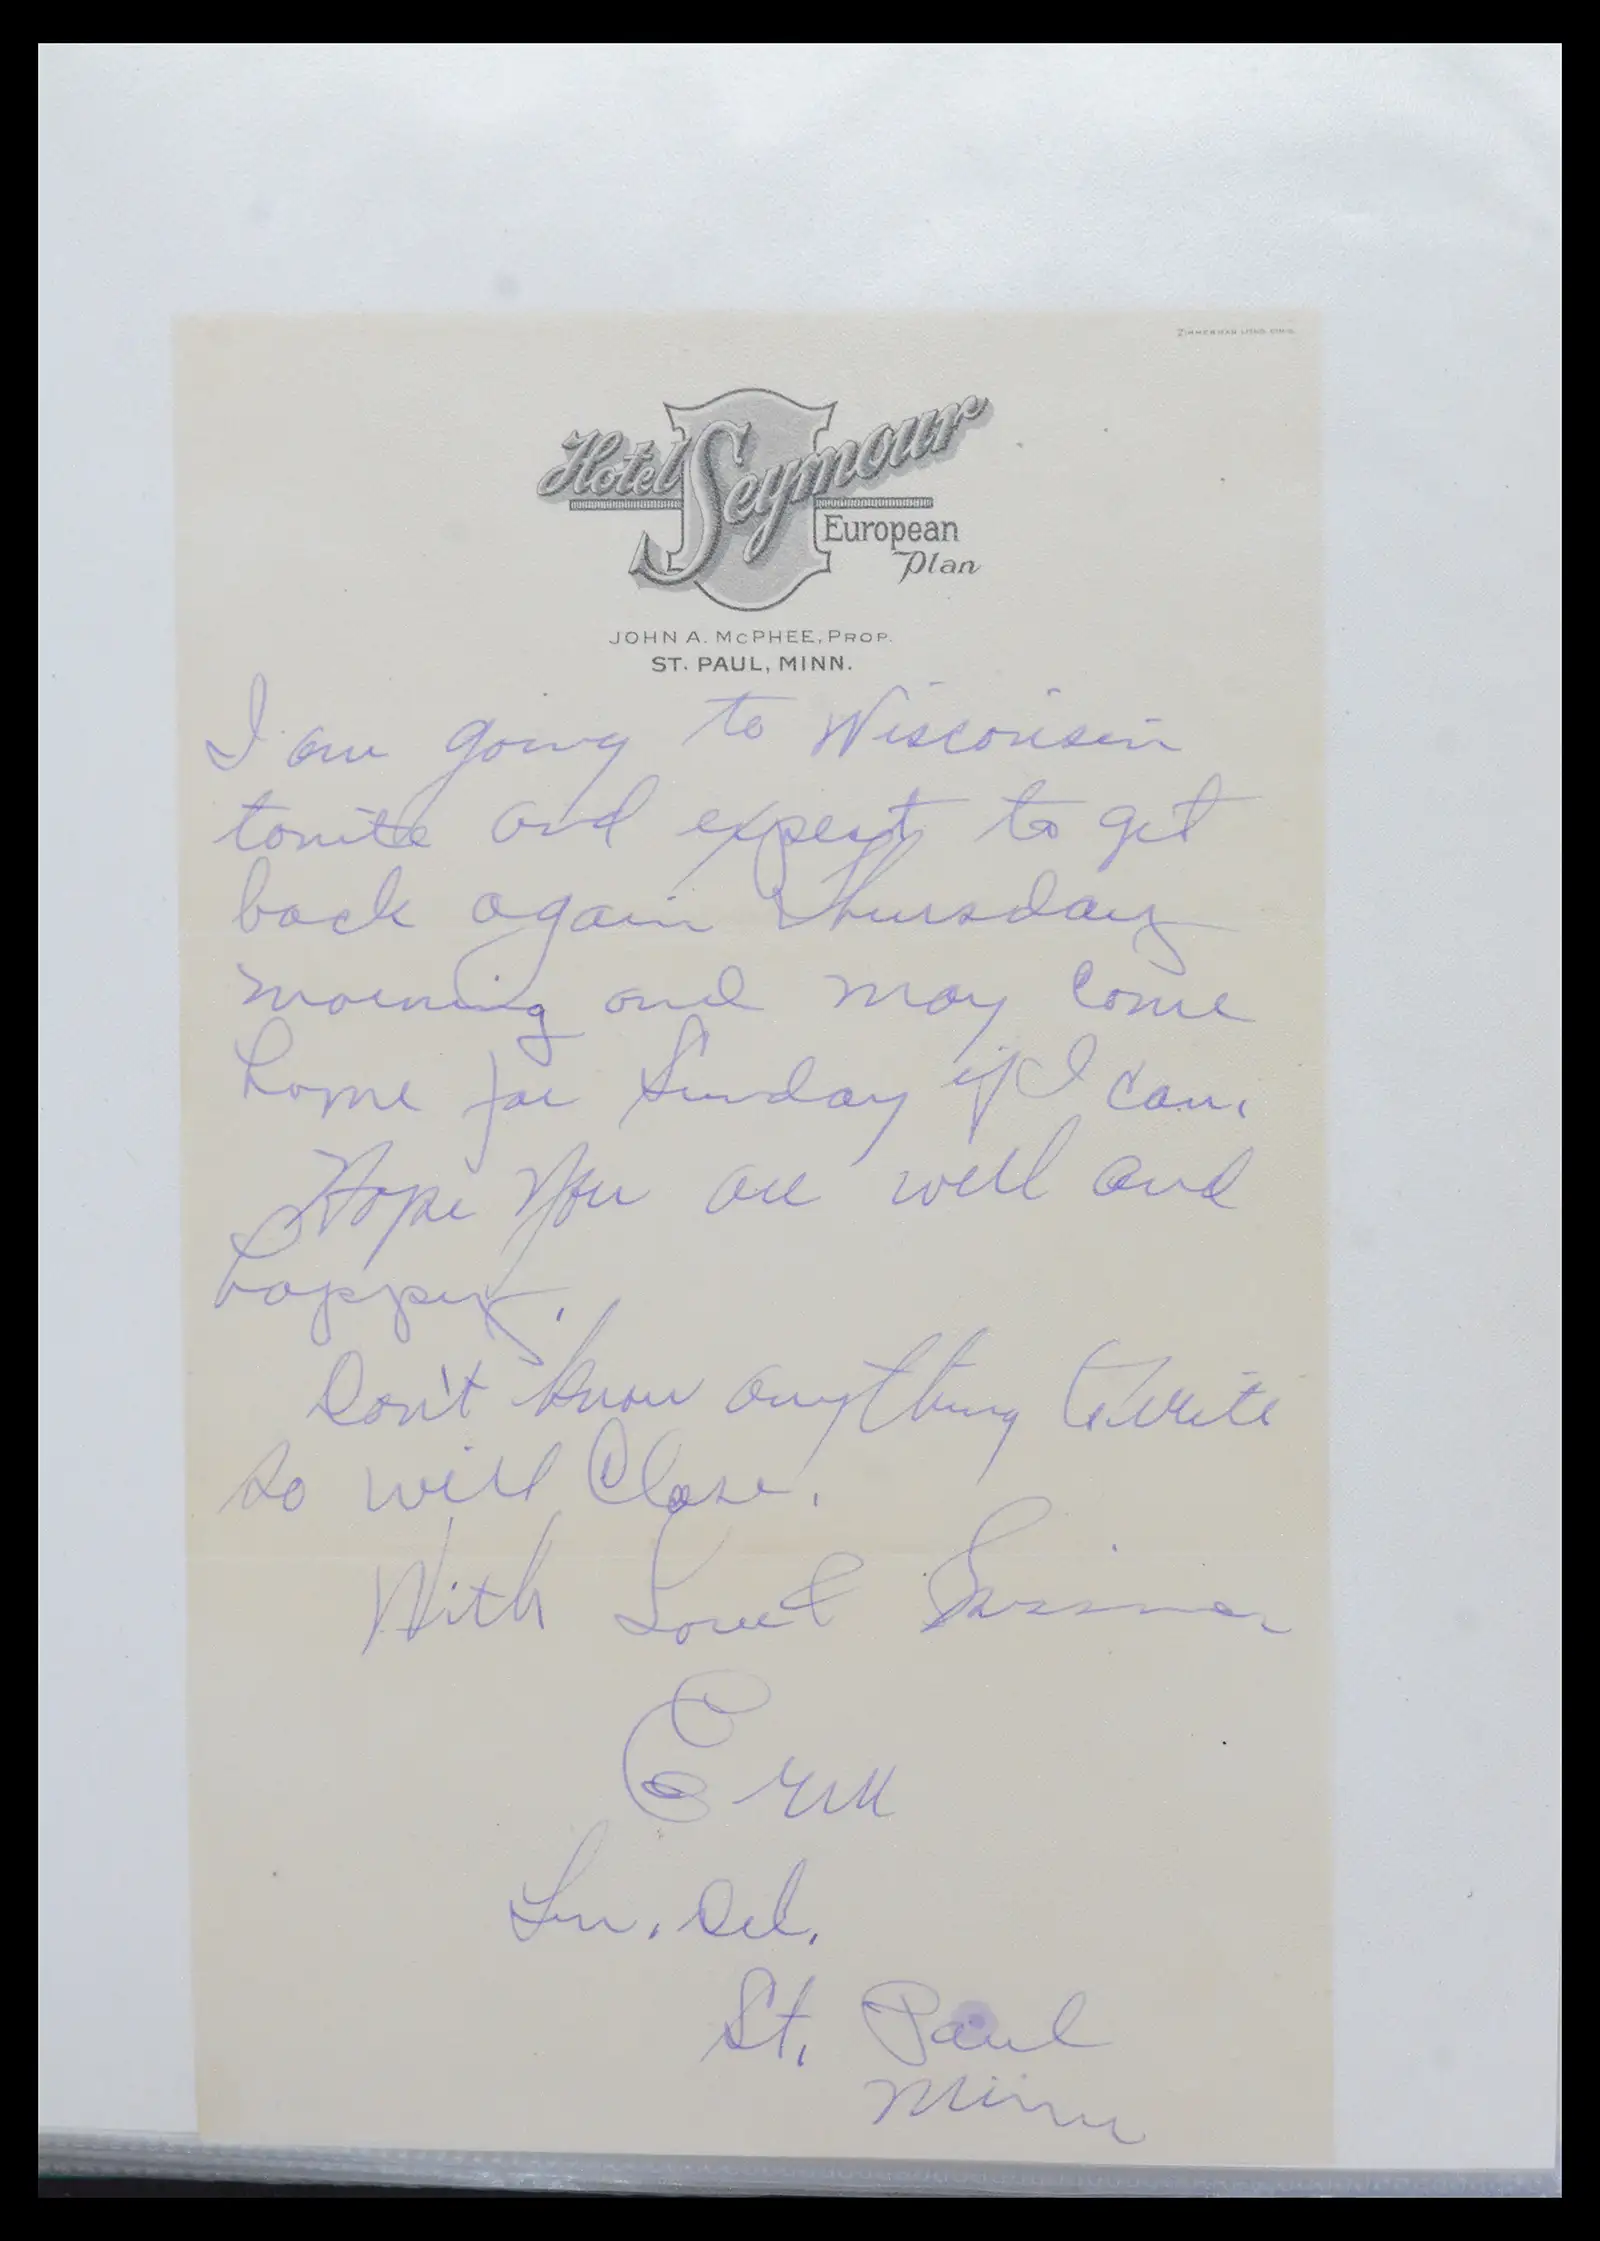 Hotel Seymour
European
Plan
JOHN A. McPHEE, PROP.
ST. PAUL, MINN.
I am going to Wisconsin
tonite and expect to get
back again Thursday
morning and may come
home for Sunday if I can.
Hope you are well and
happy.
Don't know anything to write
so will close.
With Love &
Gen. Del.
St. Paul
Minn